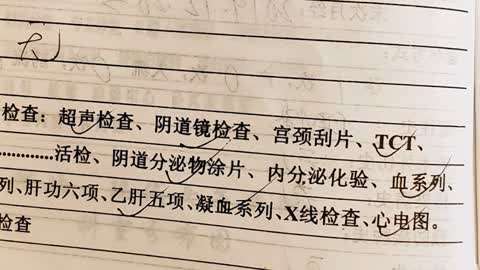 无
检查：超声检查、阴道镜检查、宫颈刮片、TCT、
................活检、阴道分泌物涂片、内分泌化验、血系列、
列、肝功六项、乙肝五项、凝血系列、X线检查、心电图。
检查